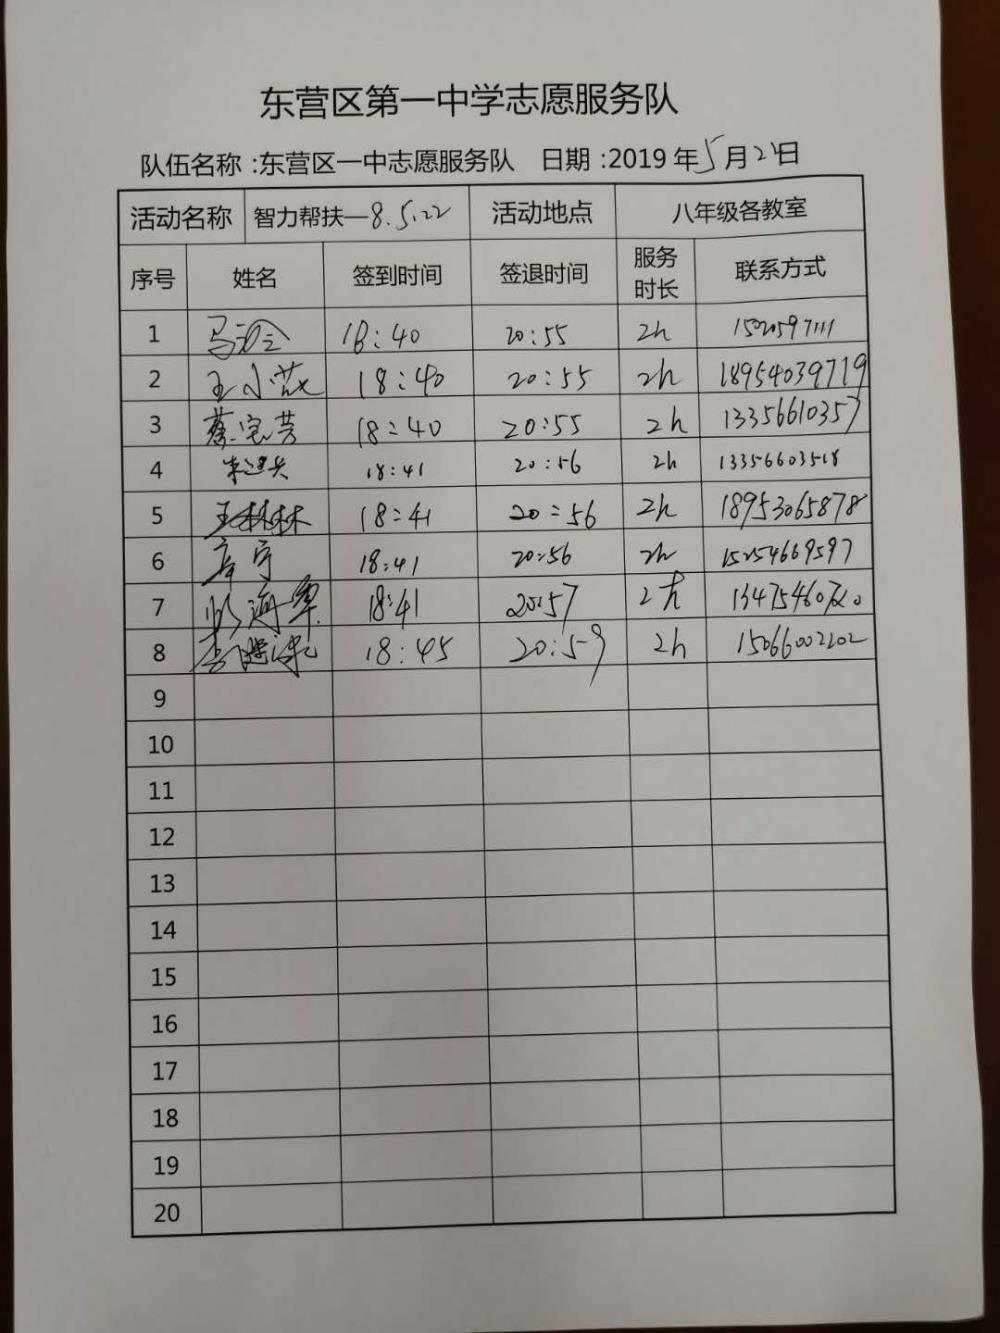 东营区第一中学志愿服务队
队伍名称:东营区一中志愿服务队 日期:2019年5月22日
活动名称 智力帮扶—8.5.22 活动地点 八年级各教室
序号 姓名 签到时间 签退时间 服务时长 联系方式
1 18:40 20:55 2h
2 18:40 20:55 2h 18954039719
3 蔡宝芳 18:40 20:55 2h 13356610357
4 18:41 20:56 2h 13356603518
5 18:41 20:56 2h 18953065878
6 18:41 20:56 2h 15254669597
7 18:41 20:57
8 18:45 20:59 2h 15066002202
9
10
11
12
13
14
15
16
17
18
19
20